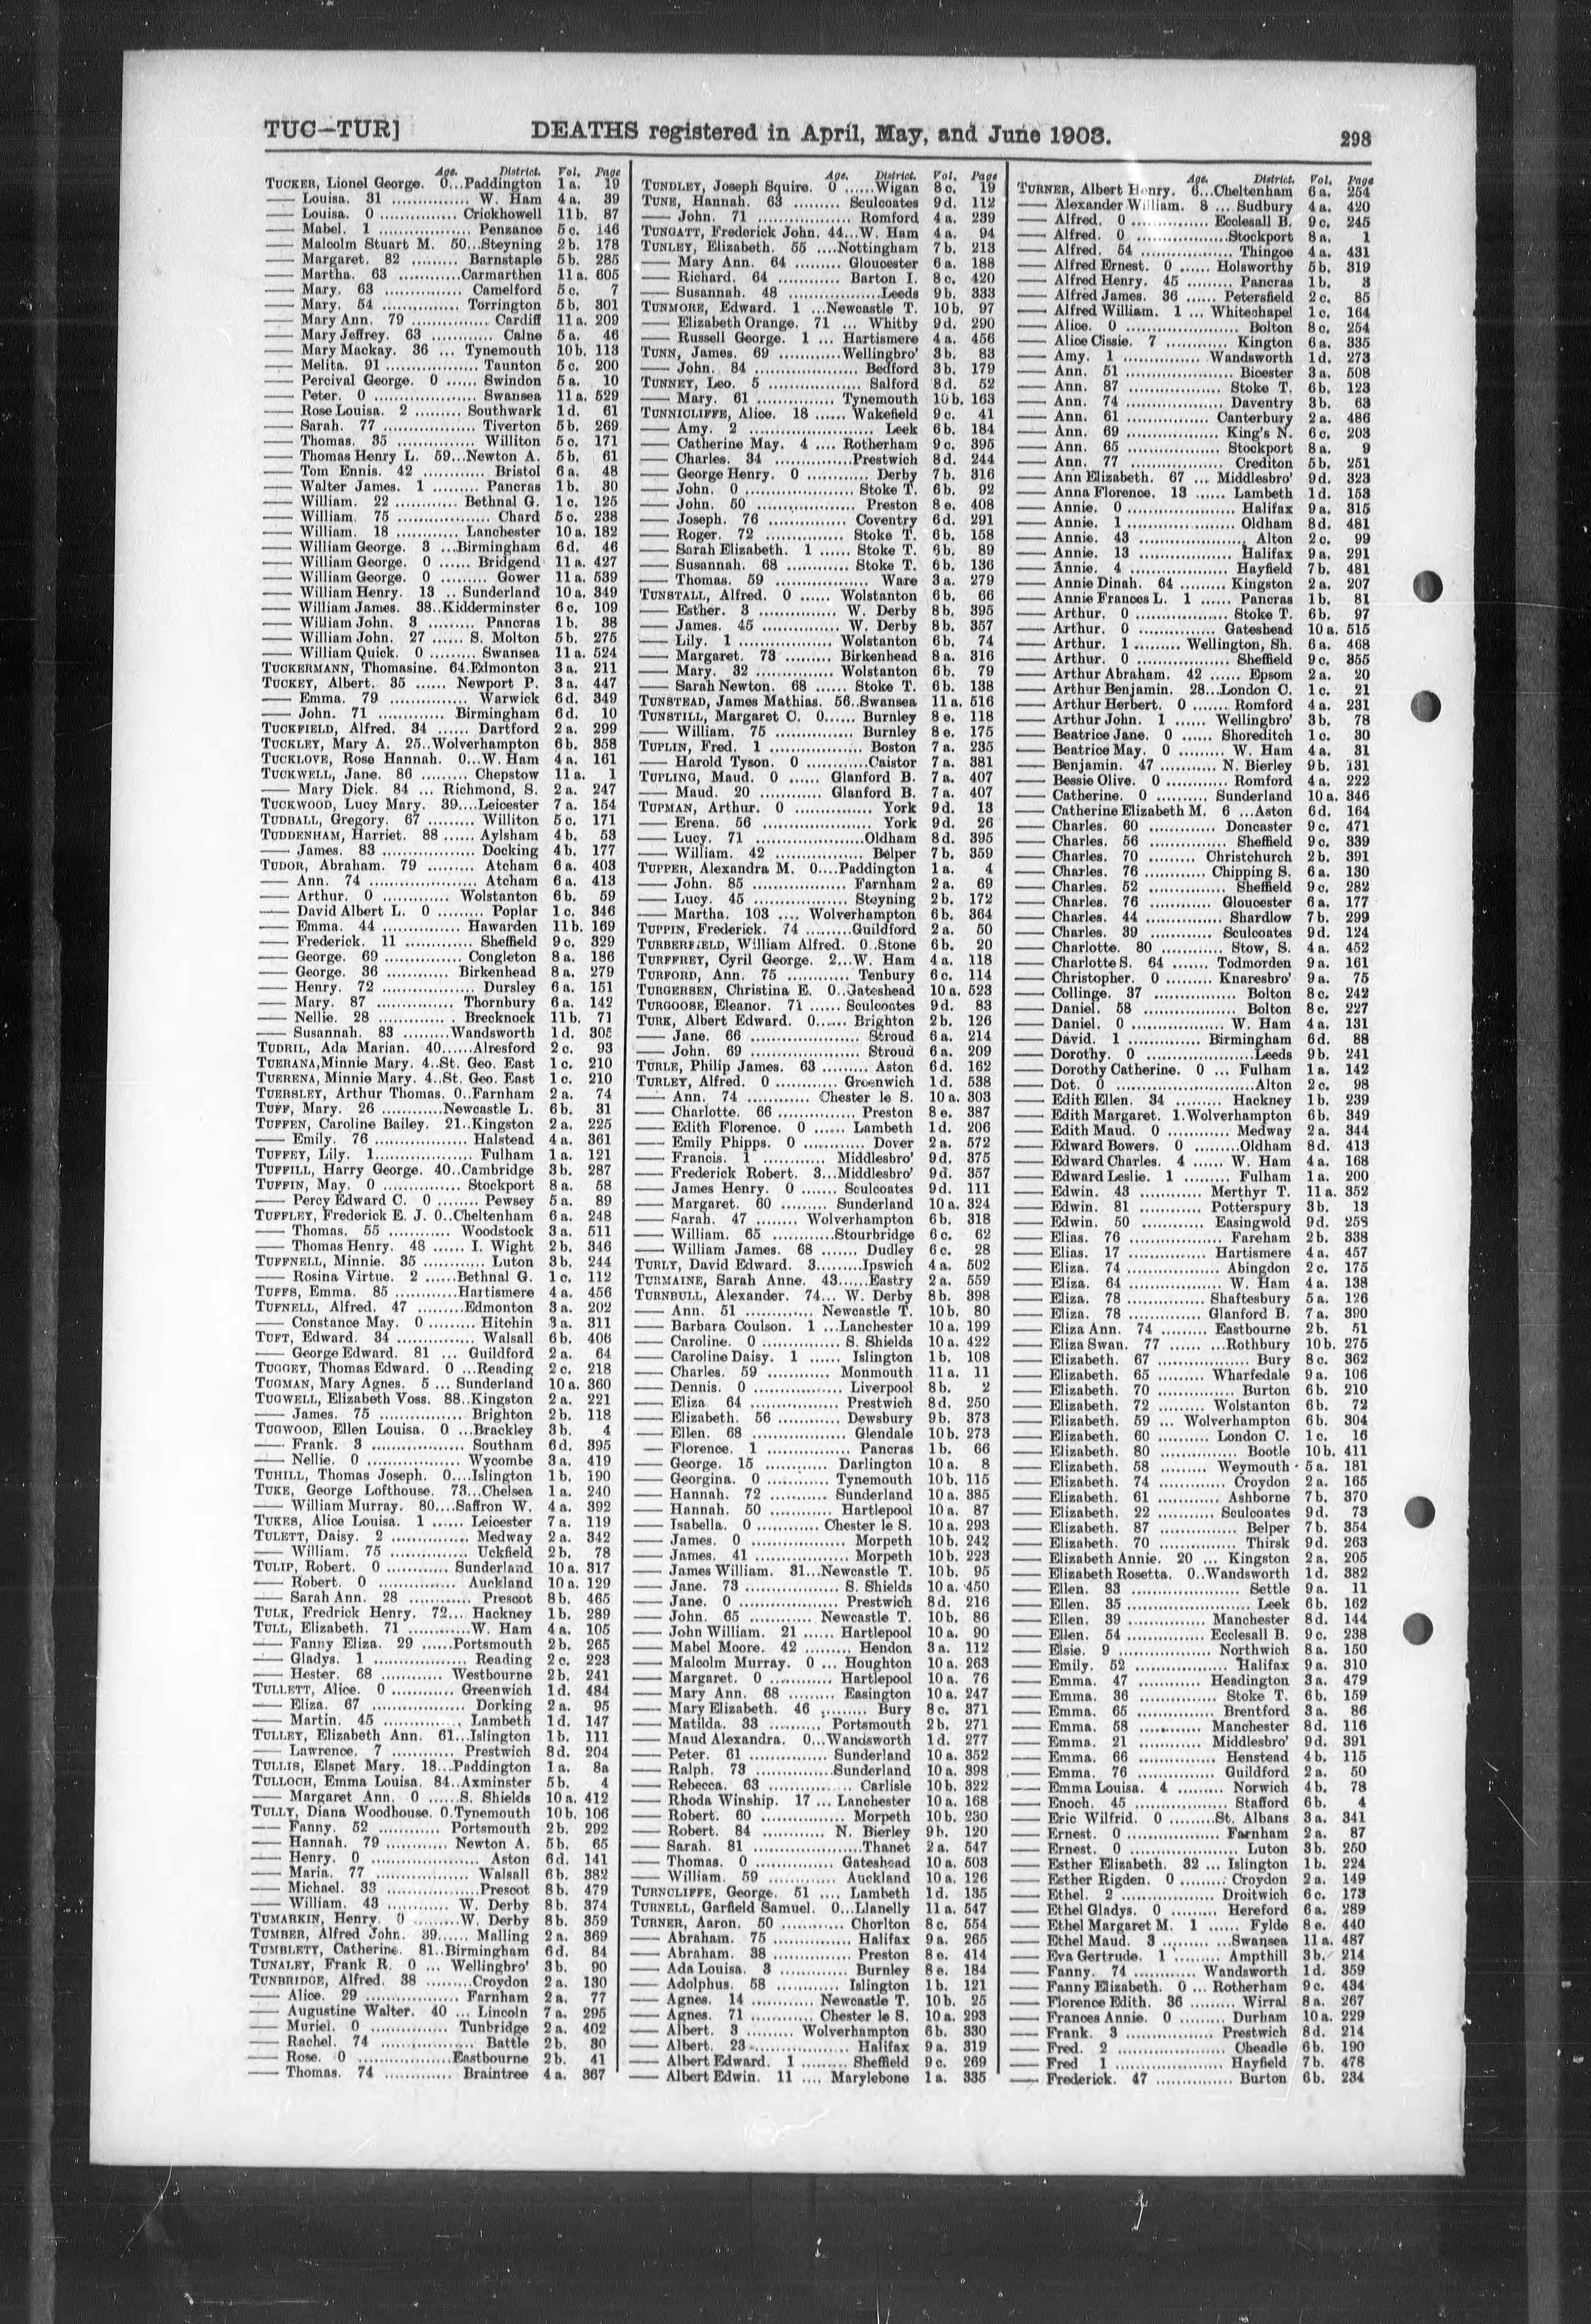 TUC—TUR]
DEATHS registered in April, May, and June 1903.
298
Age. District. Vol. Page
TUCKER, Lionel George. 0...Paddington 1 a. 19
—— Louisa. 31 .............. W. Ham 4 a. 39
—— Louisa. 0 ............... Crickhowell 11 b. 87
—— Mabel. 1 .................. Penzance 5 c. 146
—— Malcolm Stuart M. 50...Steyning 2 b. 178
—— Margaret. 82 ......... Barnstaple 5 b. 285
—— Martha. 63 ............Carmarthen 11 a. 605
—— Mary. 63 ............... Camelford 5 c. 7
—— Mary. 54 ............... Torrington 5 b. 301
—— Mary Ann. 79 ............... Cardiff 11 a. 209
—— Mary Jeffrey. 63 ............ Calne 5 a. 46
—— Mary Mackay. 36 ... Tynemouth 10 b. 113
—— Melita. 91 .................. Taunton 5 c. 200
—— Percival George. 0 ...... Swindon 5 a. 10
—— Peter. 0 .................. Swansea 11 a. 529
—— Rose Louisa. 2 ......... Southwark 1 d. 61
—— Sarah. 77 .................. Tiverton 5 b. 269
—— Thomas. 35 ............... Williton 5 c. 171
—— Thomas Henry L. 59...Newton A. 5 b. 61
—— Tom Ennis. 42 ............ Bristol 6 a. 48
—— Walter James. 1 ......... Pancras 1 b. 30
—— William. 22 ............ Bethnal G. 1 c. 125
—— William. 75 .................. Chard 5 c. 238
—— William. 18 ............ Lanchester 10 a. 182
—— William George. 3 ...Birmingham 6 d. 46
—— William George. 0 ...... Bridgend 11 a. 427
—— William George. 0 ......... Gower 11 a. 539
—— William Henry. 13 .. Sunderland 10 a. 349
—— William James. 38..Kidderminster 6 c. 109
—— William John. 3 ......... Pancras 1 b. 38
—— William John. 27 ...... S. Molton 5 b. 275
—— William Quick. 0 ......... Swansea 11 a. 524
TUCKERMANN, Thomasine. 64.Edmonton 3 a. 211
TUCKEY, Albert. 35 ...... Newport P. 3 a. 447
—— Emma. 79 ............... Warwick 6 d. 349
—— John. 71 ............... Birmingham 6 d. 10
TUCKFIELD, Alfred. 34 ...... Dartford 2 a. 299
TUCKLEY, Mary A. 25..Wolverhampton 6 b. 358
TUCKLOVE, Rose Hannah. 0...W. Ham 4 a. 161
TUCKWELL, Jane. 86 ......... Chepstow 11 a. 1
—— Mary Dick. 84 ... Richmond, S. 2 a. 247
TUCKWOOD, Lucy Mary. 39....Leicester 7 a. 154
TUDBALL, Gregory. 67 ......... Williton 5 c. 171
TUDDENHAM, Harriet. 88 ...... Aylsham 4 b. 53
—— James. 83 .................. Docking 4 b. 177
TUDOR, Abraham. 79 ......... Atcham 6 a. 403
—— Ann. 74 ..................... Atcham 6 a. 413
—— Arthur. 0 ............... Wolstanton 6 b. 59
—— David Albert L. 0 ......... Poplar 1 c. 346
—— Emma. 44 ............... Hawarden 11 b. 169
—— Frederick. 11 ............ Sheffield 9 c. 329
—— George. 69 ............... Congleton 8 a. 186
—— George. 36 ............ Birkenhead 8 a. 279
—— Henry. 72 .................. Dursley 6 a. 151
—— Mary. 87 ............... Thornbury 6 a. 142
—— Nellie. 28 ............... Brecknock 11 b. 71
—— Susannah. 83 .........Wandsworth 1 d. 305
TUDRIL, Ada Marian. 40......Alresford 2 c. 93
TUERANA, Minnie Mary. 4..St. Geo. East 1 c. 210
TUERENA, Minnie Mary. 4..St. Geo. East 1 c. 210
TUERSLEY, Arthur Thomas. 0..Farnham 2 a. 74
TUFF, Mary. 26 ............Newcastle L. 6 b. 31
TUFFEN, Caroline Bailey. 21..Kingston 2 a. 225
—— Emily. 76 .................. Halstead 4 a. 361
TUFFEY, Lily. 1.................. Fulham 1 a. 121
TUFFILL, Harry George. 40..Cambridge 3 b. 287
TUFFIN, May. 0 ............... Stockport 8 a. 58
—— Percy Edward C. 0 ........ Pewsey 5 a. 89
TUFFLEY, Frederick E. J. 0..Cheltenham 6 a. 248
—— Thomas. 55 ............ Woodstock 3 a. 511
—— Thomas Henry. 48 ...... I. Wight 2 b. 346
TUFFNELL, Minnie. 35 ............ Luton 3 b. 244
—— Rosina Virtue. 2 ......Bethnal G. 1 c. 112
TUFFS, Emma. 85 ............Hartismere 4 a. 456
TUFNELL, Alfred. 47 .........Edmonton 3 a. 202
—— Constance May. 0 ......... Hitchin 3 a. 311
TUFT, Edward. 34 ............... Walsall 6 b. 406
—— George Edward. 81 ... Guildford 2 a. 64
TUGGEY, Thomas Edward. 0 ...Reading 2 c. 218
TUGMAN, Mary Agnes. 5 ... Sunderland 10 a. 360
TUGWELL, Elizabeth Voss. 88..Kingston 2 a. 221
—— James. 75 ............... Brighton 2 b. 118
TUGWOOD, Ellen Louisa. 0 ...Brackley 3 b. 4
—— Frank. 3 .................. Southam 6 d. 395
—— Nellie. 0 .................. Wycombe 3 a. 419
TUHILL, Thomas Joseph. 0....Islington 1 b. 190
TUKE, George Lofthouse. 73...Chelsea 1 a. 240
—— William Murray. 80....Saffron W. 4 a. 392
TUKES, Alice Louisa. 1 ...... Leicester 7 a. 119
TULETT, Daisy. 2 ............... Medway 2 a. 342
—— William. 75 ............... Uckfield 2 b. 78
TULIP, Robert. 0 ............ Sunderland 10 a. 317
—— Robert. 0 ............... Auckland 10 a. 129
—— Sarah Ann. 28 ............ Prescot 8 b. 465
TULK, Fredrick Henry. 72... Hackney 1 b. 289
TULL, Elizabeth. 71 ............W. Ham 4 a. 105
—— Fanny Eliza. 29 ......Portsmouth 2 b. 265
—— Gladys. 1 .................. Reading 2 c. 223
—— Hester. 68 ............ Westbourne 2 b. 241
TULLETT, Alice. 0 ............ Greenwich 1 d. 484
—— Eliza. 67 .................. Dorking 2 a. 95
—— Martin. 45 ............... Lambeth 1 d. 147
TULLEY, Elizabeth Ann. 61...Islington 1 b. 111
—— Lawrence. 7 ............ Prestwich 8 d. 204
TULLIS, Elspet Mary. 18...Paddington 1 a. 8a
TULLOCH, Emma Louisa. 84..Axminster 5 b. 4
—— Margaret Ann. 0 ......S. Shields 10 a. 412
TULLY, Diana Woodhouse. 0.Tynemouth 10 b. 106
—— Fanny. 52 ............ Portsmouth 2 b. 292
—— Hannah. 79 ............ Newton A. 5 b. 65
—— Henry. 0 ..................... Aston 6 d. 141
—— Maria. 77 .................. Walsall 6 b. 382
—— Michael. 33 .................Prescot 8 b. 479
—— William. 43 ............ W. Derby 8 b. 374
TUMARKIN, Henry. 0 .........W. Derby 8 b. 359
TUMBER, Alfred John. 39...... Malling 2 a. 369
TUMBLETY, Catherine. 81..Birmingham 6 d. 84
TUNALEY, Frank R. 0 ... Wellingbro' 3 b. 90
TUNBRIDGE, Alfred. 38 .........Croydon 2 a. 130
—— Alice. 29 .................. Farnham 2 a. 77
—— Augustine Walter. 40 ... Lincoln 7 a. 295
—— Muriel. 0 ............... Tunbridge 2 a. 402
—— Rachel. 74 .................. Battle 2 b. 30
—— Rose. 0 ..................Eastbourne 2 b. 41
—— Thomas. 74 ............ Braintree 4 a. 367
Age. District. Vol. Page
TUNDLEY, Joseph Squire. 0 ......Wigan 8 c. 19
TUNE, Hannah. 63 ......... Sculcoates 9 d. 112
—— John. 71 .................. Romford 4 a. 239
TUNGATT, Frederick John. 44...W. Ham 4 a. 94
TUNLEY, Elizabeth. 55 ....Nottingham 7 b. 213
—— Mary Ann. 64 ......... Gloucester 6 a. 188
—— Richard. 64 ............ Barton I. 8 c. 420
—— Susannah. 48 ..................Leeds 9 b. 333
TUNMORE, Edward. 1 ...Newcastle T. 10 b. 97
—— Elizabeth Orange. 71 ... Whitby 9 d. 290
—— Russell George. 1 ... Hartismere 4 a. 456
TUNN, James. 69 ............Wellingbro' 3 b. 83
—— John. 84 .................. Bedford 3 b. 179
TUNNEY, Leo. 5 .................. Salford 8 d. 52
—— Mary. 61 ............... Tynemouth 10 b. 163
TUNNICLIFFE, Alice. 18 ...... Wakefield 9 c. 41
—— Amy. 2 ........................ Leek 6 b. 184
—— Catherine May. 4 .... Rotherham 9 c. 395
—— Charles. 34 ...............Prestwich 8 d. 244
—— George Henry. 0 ............ Derby 7 b. 316
—— John. 0 ..................... Stoke T. 6 b. 92
—— John. 50 .................. Preston 8 e. 408
—— Joseph. 76 ............... Coventry 6 d. 291
—— Roger. 72 ............... Stoke T. 6 b. 158
—— Sarah Elizabeth. 1 ...... Stoke T. 6 b. 89
—— Susannah. 68 ............ Stoke T. 6 b. 136
—— Thomas. 59 .................. Ware 3 a. 279
TUNSTALL, Alfred. 0 ...... Wolstanton 6 b. 66
—— Esther. 3 ............... W. Derby 8 b. 395
—— James. 45 ............... W. Derby 8 b. 357
—— Lily. 1 .................. Wolstanton 6 b. 74
—— Margaret. 73 ......... Birkenhead 8 a. 316
—— Mary. 32 ............... Wolstanton 6 b. 79
—— Sarah Newton. 68 ...... Stoke T. 6 b. 138
TUNSTEAD, James Mathias. 56..Swansea 11 a. 516
TUNSTILL, Margaret C. 0...... Burnley 8 e. 118
—— William. 75 ............... Burnley 8 e. 175
TUPLIN, Fred. 1 .................. Boston 7 a. 235
—— Harold Tyson. 0 ............Caistor 7 a. 381
TUPLING, Maud. 0 ...... Glanford B. 7 a. 407
—— Maud. 20 ............ Glanford B. 7 a. 407
TUPMAN, Arthur. 0 ............... York 9 d. 13
—— Erena. 56 ..................... York 9 d. 26
—— Lucy. 71 .....................Oldham 8 d. 395
—— William. 42 .................. Belper 7 b. 359
TUPPER, Alexandra M. 0....Paddington 1 a. 4
—— John. 85 .................. Farnham 2 a. 69
—— Lucy. 45 .................. Steyning 2 b. 172
—— Martha. 103 .... Wolverhampton 6 b. 364
TUPPIN, Frederick. 74 .........Guildford 2 a. 50
TURBERFIELD, William Alfred. 0..Stone 6 b. 20
TURFFREY, Cyril George. 2...W. Ham 4 a. 118
TURFORD, Ann. 75 ............ Tenbury 6 c. 114
TURGERSEN, Christina E. 0..Gateshead 10 a. 523
TURGOOSE, Eleanor. 71 ...... Sculcoates 9 d. 83
TURK, Albert Edward. 0...... Brighton 2 b. 126
—— Jane. 66 ..................... Stroud 6 a. 214
—— John. 69 ..................... Stroud 6 a. 209
TURLE, Philip James. 63 ......... Aston 6 d. 162
TURLEY, Alfred. 0 ............ Greenwich 1 d. 538
—— Ann. 74 ............ Chester le S. 10 a. 303
—— Charlotte. 66 ............... Preston 8 e. 387
—— Edith Florence. 0 ...... Lambeth 1 d. 206
—— Emily Phipps. 0 ............ Dover 2 a. 572
—— Francis. 1 ............ Middlesbro' 9 d. 375
—— Frederick Robert. 3...Middlesbro' 9 d. 357
—— James Henry. 0 ....... Sculcoates 9 d. 111
—— Margaret. 60 ......... Sunderland 10 a. 324
—— Sarah. 47 ........ Wolverhampton 6 b. 318
—— William. 65 ............Stourbridge 6 c. 62
—— William James. 68 ....... Dudley 6 c. 28
TURLY, David Edward. 3.........Ipswich 4 a. 502
TURMAINE, Sarah Anne. 43......Eastry 2 a. 559
TURNBULL, Alexander. 74... W. Derby 8 b. 398
—— Ann. 51 ............ Newcastle T. 10 b. 80
—— Barbara Coulson. 1 ...Lanchester 10 a. 199
—— Caroline. 0 ............... S. Shields 10 a. 422
—— Caroline Daisy. 1 ...... Islington 1 b. 108
—— Charles. 59 ............ Monmouth 11 a. 11
—— Dennis. 0 ............... Liverpool 8 b. 2
—— Eliza 64 ............... Prestwich 8 d. 250
—— Elizabeth. 56 ............ Dewsbury 9 b. 373
—— Ellen. 68 ............... Glendale 10 b. 273
—— Florence. 1 ............... Pancras 1 b. 66
—— George. 15 ............ Darlington 10 a. 8
—— Georgina. 0 ............ Tynemouth 10 b. 115
—— Hannah. 72 ............ Sunderland 10 a. 385
—— Hannah. 50 ............ Hartlepool 10 a. 87
—— Isabella. 0 ............ Chester le S. 10 a. 293
—— James. 0 .................. Morpeth 10 b. 242
—— James. 41 .................. Morpeth 10 b. 223
—— James William. 31...Newcastle T. 10 b. 95
—— Jane. 73 .................. S. Shields 10 a. 450
—— Jane. 0 .................. Prestwich 8 d. 216
—— John. 65 ............ Newcastle T. 10 b. 86
—— John William. 21 ...... Hartlepool 10 a. 90
—— Mabel Moore. 42 ......... Hendon 3 a. 112
—— Malcolm Murray. 0 ... Houghton 10 a. 263
—— Margaret. 0 ............ Hartlepool 10 a. 76
—— Mary Ann. 68 ......... Easington 10 a. 247
—— Mary Elizabeth. 46 ......... Bury 8 c. 371
—— Matilda. 33 ............ Portsmouth 2 b. 271
—— Maud Alexandra. 0...Wandsworth 1 d. 277
—— Peter. 61 ...............Sunderland 10 a. 352
—— Ralph. 73 ...............Sunderland 10 a. 398
—— Rebecca. 63 ............... Carlisle 10 b. 322
—— Rhoda Winship. 17 ... Lanchester 10 a. 168
—— Robert. 60 ............... Morpeth 10 b. 230
—— Robert. 84 ............ N. Bierley 9 b. 120
—— Sarah. 81 .....................Thanet 2 a. 547
—— Thomas. 0 ............... Gateshead 10 a. 503
—— William. 59 ............ Auckland 10 a. 126
TURNCLIFFE, George. 51 .... Lambeth 1 d. 135
TURNELL, Garfield Samuel. 0...Llanelly 11 a. 547
TURNER, Aaron. 50 ............ Chorlton 8 c. 554
—— Abraham. 75 ............... Halifax 9 a. 265
—— Abraham. 38 ............... Preston 8 e. 414
—— Ada Louisa. 3 ............ Burnley 8 e. 184
—— Adolphus. 58 ............ Islington 1 b. 121
—— Agnes. 14 ............ Newcastle T. 10 b. 25
—— Agnes. 71 ............ Chester le S. 10 a. 293
—— Albert. 3 ......... Wolverhampton 6 b. 330
—— Albert. 23 .................. Halifax 9 a. 319
—— Albert Edward. 1 ......... Sheffield 9 c. 269
—— Albert Edwin. 11 .... Marylebone 1 a. 335
Age. District. Vol. Page
TURNER, Albert Henry. 6...Cheltenham 6 a. 254
—— Alexander William. 8 ... Sudbury 4 a. 420
—— Alfred. 0 ............ Ecclesall B. 9 c. 245
—— Alfred. 0 ..................Stockport 8 a. 1
—— Alfred. 54 .................. Thingoe 4 a. 431
—— Alfred Ernest. 0 ...... Holsworthy 5 b. 319
—— Alfred Henry. 45 ......... Pancras 1 b. 3
—— Alfred James. 36 ...... Petersfield 2 c. 85
—— Alfred William. 1 ... Whitechapel 1 c. 164
—— Alice. 0 ..................... Bolton 8 c. 254
—— Alice Cissie. 7 ............ Kington 6 a. 335
—— Amy. 1 ............... Wandsworth 1 d. 273
—— Ann. 51 ..................... Bicester 3 a. 508
—— Ann. 87 .................. Stoke T. 6 b. 123
—— Ann. 74 .................. Daventry 3 b. 63
—— Ann. 61 ............... Canterbury 2 a. 486
—— Ann. 69 .................. King's N. 6 c. 203
—— Ann. 65 .................. Stockport 8 a. 9
—— Ann. 77 .................. Crediton 5 b. 251
—— Ann Elizabeth. 67 ... Middlesbro' 9 d. 323
—— Anna Florence. 13 ...... Lambeth 1 d. 153
—— Annie. 0 ..................... Halifax 9 a. 315
—— Annie. 1 ..................... Oldham 8 d. 481
—— Annie. 43 ..................... Alton 2 c. 99
—— Annie. 13 .................. Halifax 9 a. 291
—— Annie. 4 ..................... Hayfield 7 b. 481
—— Annie Dinah. 64 ......... Kingston 2 a. 207
—— Annie Frances L. 1 ...... Pancras 1 b. 81
—— Arthur. 0 .................. Stoke T. 6 b. 97
—— Arthur. 0 ............... Gateshead 10 a. 515
—— Arthur. 1 ......... Wellington, Sh. 6 a. 468
—— Arthur. 0 .................. Sheffield 9 c. 355
—— Arthur Abraham. 42 ...... Epsom 2 a. 20
—— Arthur Benjamin. 28...London C. 1 c. 21
—— Arthur Herbert. 0 ....... Romford 4 a. 231
—— Arthur John. 1 ...... Wellingbro' 3 b. 78
—— Beatrice Jane. 0 ...... Shoreditch 1 c. 30
—— Beatrice May. 0 ......... W. Ham 4 a. 31
—— Benjamin. 47 ........... N. Bierley 9 b. 131
—— Bessie Olive. 0 ............ Romford 4 a. 222
—— Catherine. 0 .......... Sunderland 10 a. 346
—— Catherine Elizabeth M. 6 ...Aston 6 d. 164
—— Charles. 60 ............ Doncaster 9 c. 471
—— Charles. 56 ............... Sheffield 9 c. 339
—— Charles. 70 ......... Christchurch 2 b. 391
—— Charles. 76 ............ Chipping S. 6 a. 130
—— Charles. 52 ............... Sheffield 9 c. 282
—— Charles. 76 ............ Gloucester 6 a. 177
—— Charles. 44 ............... Shardlow 7 b. 299
—— Charles. 39 ............ Sculcoates 9 d. 124
—— Charlotte. 80 ............ Stow, S. 4 a. 452
—— Charlotte S. 64 ....... Todmorden 9 a. 161
—— Christopher. 0 ......... Knaresbro' 9 a. 75
—— Collinge. 37 ............... Bolton 8 c. 242
—— Daniel. 58 .................. Bolton 8 c. 227
—— Daniel. 0 .................. W. Ham 4 a. 131
—— David. 1 ............... Birmingham 6 d. 88
—— Dorothy. 0 ..................Leeds 9 b. 241
—— Dorothy Catherine. 0 ... Fulham 1 a. 142
—— Dot. 0 ........................Alton 2 c. 98
—— Edith Ellen. 34 ......... Hackney 1 b. 239
—— Edith Margaret. 1.Wolverhampton 6 b. 349
—— Edith Maud. 0 ............ Medway 2 a. 344
—— Edward Bowers. 0 .........Oldham 8 d. 413
—— Edward Charles. 4 ...... W. Ham 4 a. 168
—— Edward Leslie. 1 ......... Fulham 1 a. 200
—— Edwin. 43 ............ Merthyr T. 11 a. 352
—— Edwin. 81 ............ Potterspury 3 b. 13
—— Edwin. 50 ............ Easingwold 9 d. 258
—— Elias. 76 .................. Fareham 2 b. 338
—— Elias. 17 ............... Hartismere 4 a. 457
—— Eliza. 74 .................. Abingdon 2 c. 175
—— Eliza. 64 .................. W. Ham 4 a. 138
—— Eliza. 78 ............... Shaftesbury 5 a. 126
—— Eliza. 78 ............... Glanford B. 7 a. 390
—— Eliza Ann. 74 ......... Eastbourne 2 b. 51
—— Eliza Swan. 77 ......... Rothbury 10 b. 275
—— Elizabeth. 67 .................. Bury 8 c. 362
—— Elizabeth. 65 ......... Wharfedale 9 a. 106
—— Elizabeth. 70 ............... Burton 6 b. 210
—— Elizabeth. 72 ......... Wolstanton 6 b. 72
—— Elizabeth. 59 ... Wolverhampton 6 b. 304
—— Elizabeth. 60 ......... London C. 1 c. 16
—— Elizabeth. 80 ............... Bootle 10 b. 411
—— Elizabeth. 58 ......... Weymouth 5 a. 181
—— Elizabeth. 74 ............ Croydon 2 a. 165
—— Elizabeth. 61 ............ Ashborne 7 b. 370
—— Elizabeth. 22 ......... Sculcoates 9 d. 73
—— Elizabeth. 87 ............... Belper 7 b. 354
—— Elizabeth. 70 ............... Thirsk 9 d. 263
—— Elizabeth Annie. 20 ... Kingston 2 a. 205
—— Elizabeth Rosetta. 0..Wandsworth 1 d. 382
—— Ellen. 83 ..................... Settle 9 a. 11
—— Ellen. 35 ..................... Leek 6 b. 162
—— Ellen. 39 ............... Manchester 8 d. 144
—— Ellen. 54 ............... Ecclesall B. 9 c. 238
—— Elsie. 9 .................. Northwich 8 a. 150
—— Emily. 52 .................. Halifax 9 a. 310
—— Emma. 47 ............ Headington 3 a. 479
—— Emma. 36 ............... Stoke T. 6 b. 159
—— Emma. 65 ............... Brentford 3 a. 86
—— Emma. 58 ............ Manchester 8 d. 116
—— Emma. 21 ............ Middlesbro' 9 d. 391
—— Emma. 66 ............... Henstead 4 b. 115
—— Emma. 76 ............... Guildford 2 a. 50
—— Emma Louisa. 4 ......... Norwich 4 b. 78
—— Enoch. 45 .................. Stafford 6 b. 4
—— Eric Wilfrid. 0 .........St. Albans 3 a. 341
—— Ernest. 0 .................. Farnham 2 a. 87
—— Ernest. 0 ..................... Luton 3 b. 250
—— Esther Elizabeth. 32 ... Islington 1 b. 224
—— Esther Rigden. 0 ......... Croydon 2 a. 149
—— Ethel. 2 .................. Droitwich 6 c. 173
—— Ethel Gladys. 0 ......... Hereford 6 a. 289
—— Ethel Margaret M. 1 ...... Fylde 8 e. 440
—— Ethel Maud. 3 ............Swansea 11 a. 487
—— Eva Gertrude. 1 ......... Ampthill 3 b. 214
—— Fanny. 74 ............ Wandsworth 1 d. 359
—— Fanny Elizabeth. 0 ... Rotherham 9 c. 434
—— Florence Edith. 36 ......... Wirral 8 a. 267
—— Frances Annie. 0 ......... Durham 10 a. 229
—— Frank. 3 .................. Prestwich 8 d. 214
—— Fred. 2 ..................... Cheadle 6 b. 190
—— Fred 1 ..................... Hayfield 7 b. 478
—— Frederick. 47 ............... Burton 6 b. 234